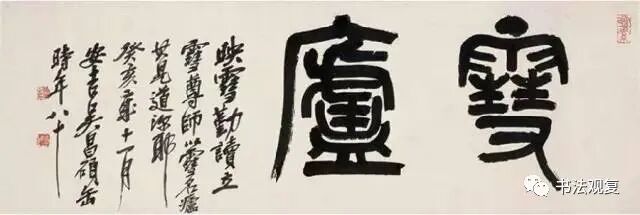 雪廬
映雪勤讀立
雪尊師以雪名廬
其見道深耶
癸亥歲十一月
安吉吳昌碩缶
時年八十
书法观复